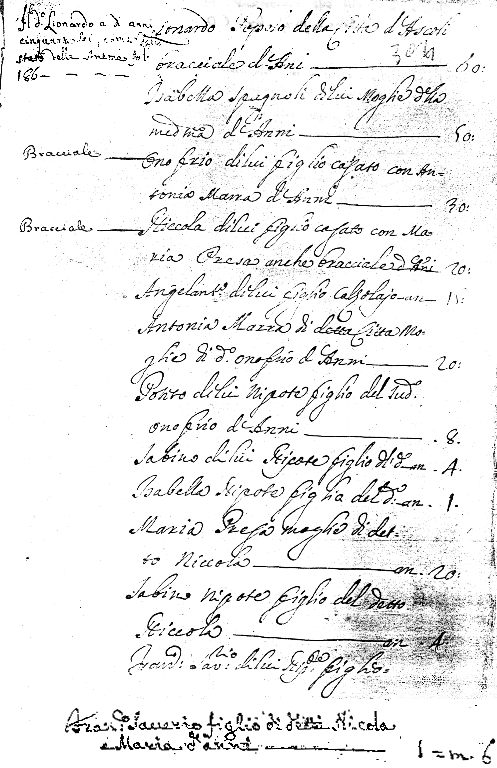 Il d.º Lionardo a d'anni
cinquantasei, come dallo
stato delle Anime fol.
186
Lionardo della Città d'Ascoli
bracciale d'Anni 60:
Isabella Spagnoli di lui Moglie della
med.ma d'Anni 50:
Bracciale Onofrio di lui figlio casato con An-
tonia Marra d'Anni 30:
Bracciale Niccola di lui figlio casato con Ma-
ria Presa anche bracciale d'Ani 20:
Angelant.º di lui figlio Calzolajo an
Antonia Marra di detta Città Mo-
glie di d.º onofrio d'Anni 20:
Ponto di lui Nipote figlio del sud.º
onofrio d'Anni 8.
Sabino di lui Nipote figlio di d.º an. 4.
Isabella Nipote figlia del d.º an. 1.
Maria Presa moglie di det-
to Niccola an. 20:
Sabino nipote figlio del detto
Niccola an 4.
di lui figlio
Fran.º Saverio figlio di detti Nicola
e Maria d'anni 1 = m. 6